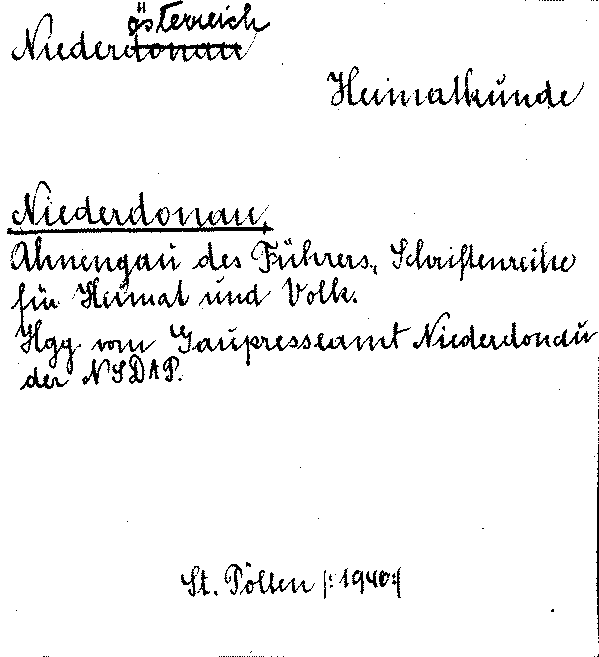 österreich
Niederdonau
Heimatkunde
Niederdonau,
Ahnengau des Führers, Schriftenreihe
für Heimat und Volk.
Hgg vom Gaupresseamt Niederdonau
der NSDAP.
St. Pölten /:1940:/